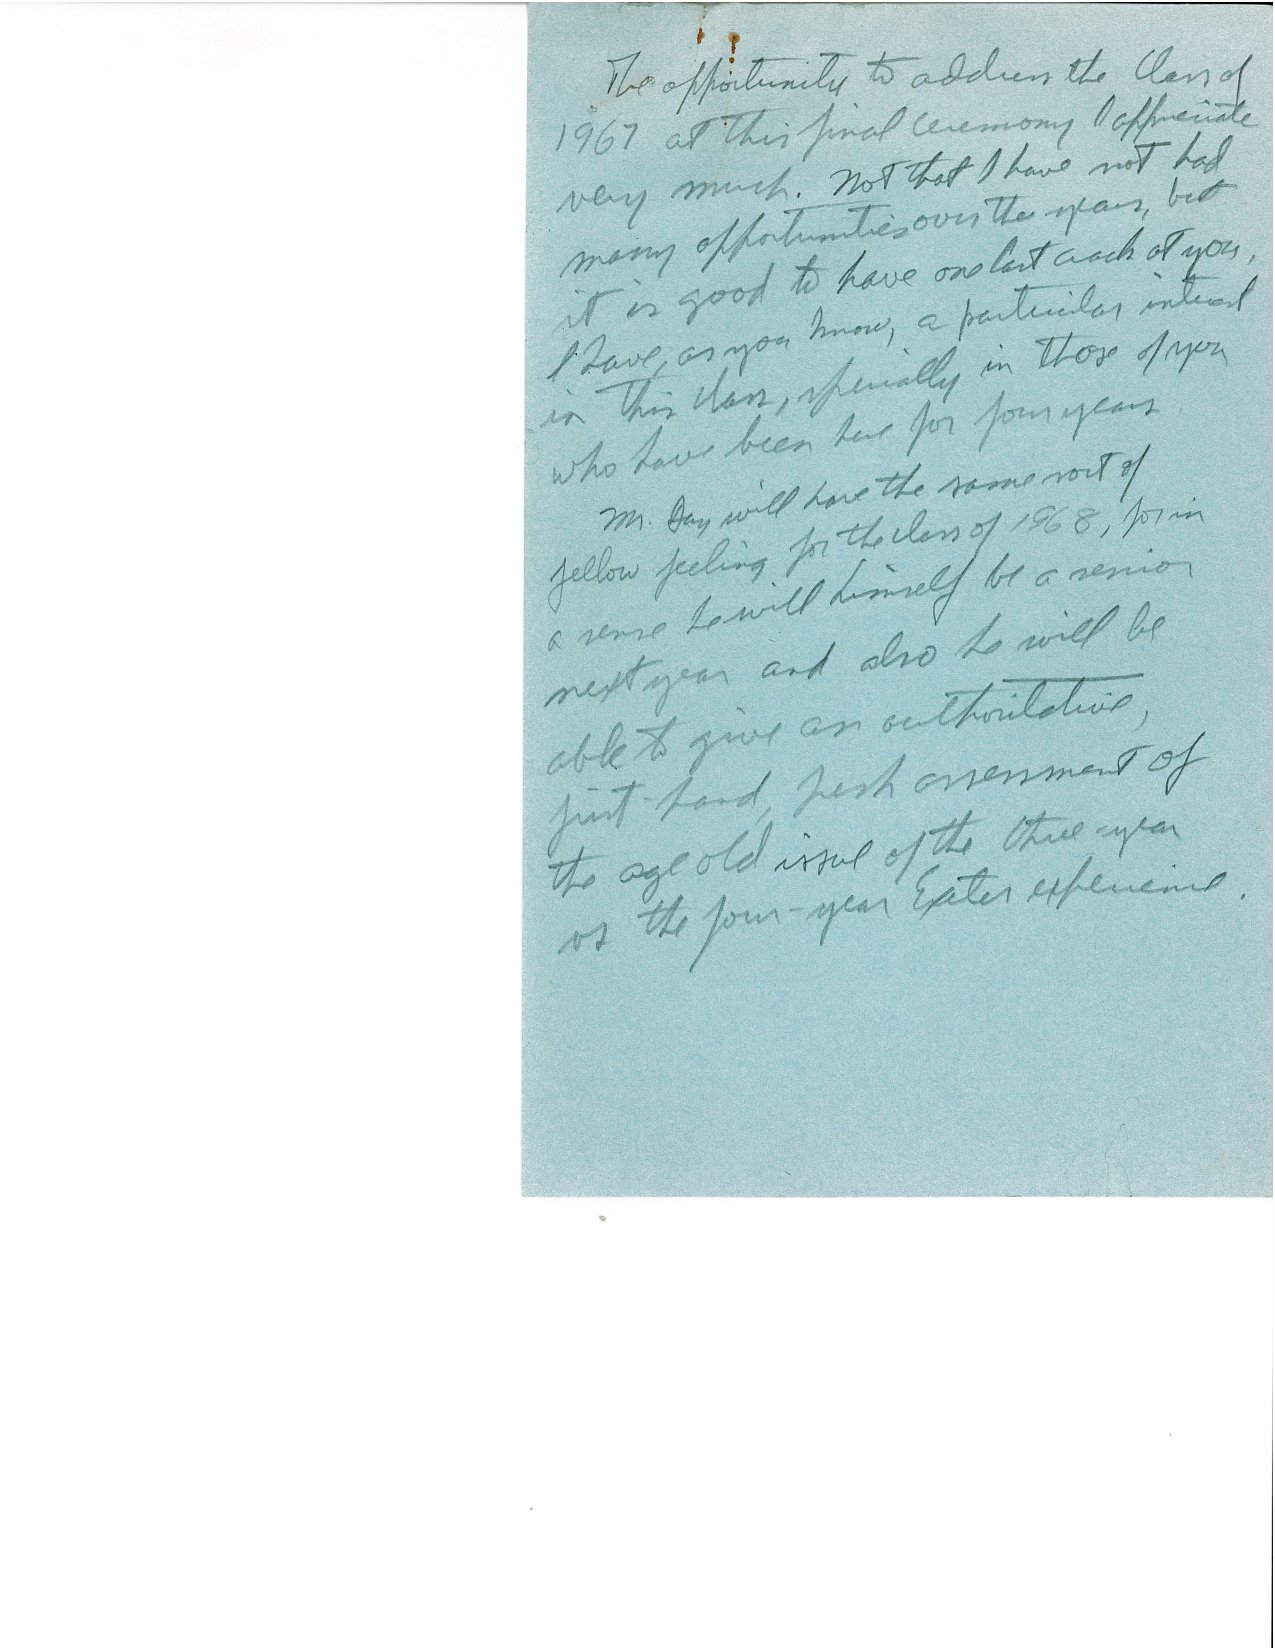 The opportunity to address the Class of
1967 at this final ceremony I appreciate
very much. Not that I have not had
many opportunities over the years, but
it is good to have one last crack at you.
I have, as you know, a particular interest
in this class, specially in those of you
who have been here for four years.
Mr. Day will have the same sort of
fellow feeling for the class of 1968, for in
a sense he will himself be a senior
next year and also he will be
able to give an authoritative,
first-hand, fresh assessment of
the age old issue of the three-year
vs the four-year Exeter experience.